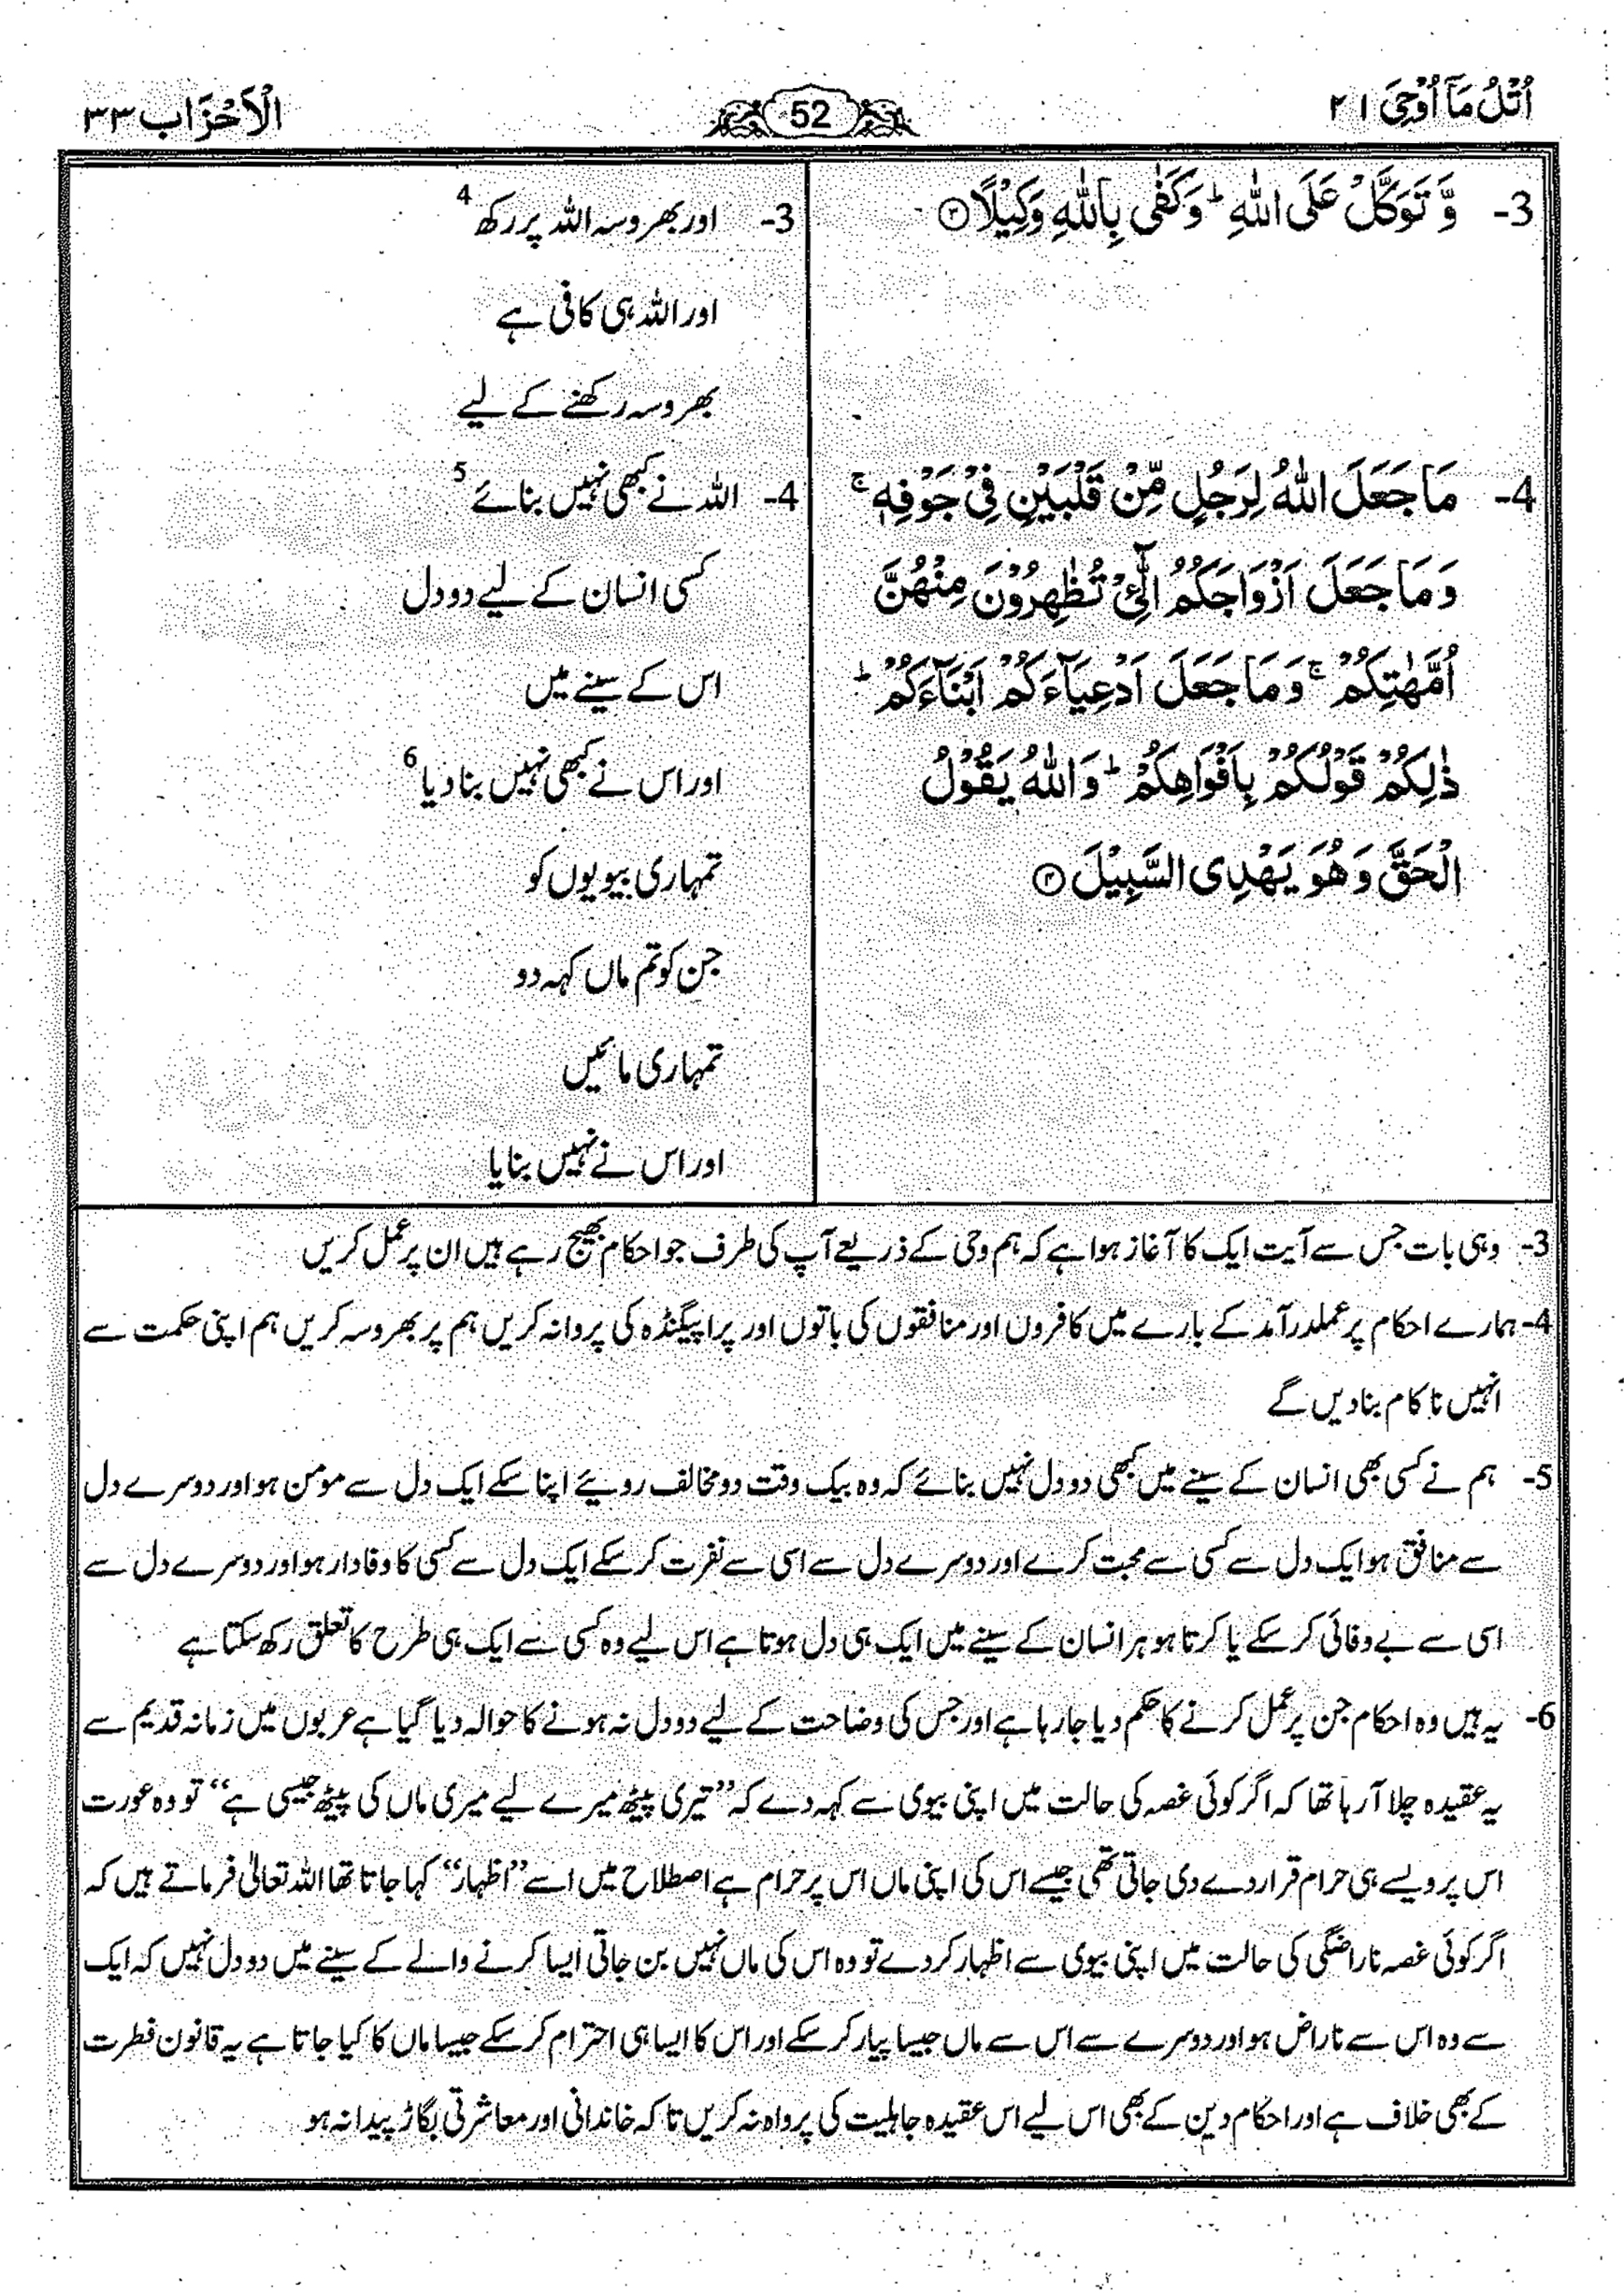 اُتْلُ مَآ اُوْحِیَ ۲۱
52
الْاَحْزَاب ۳۳
3- وَّ تَوَكَّلْ عَلَى اللّٰهِ ؕ وَكَفٰى بِاللّٰهِ وَكِيْلًا ۝۳
4- مَا جَعَلَ اللّٰهُ لِرَجُلٍ مِّنْ قَلْبَيْنِ فِيْ جَوْفِهٖ ۚ
وَمَا جَعَلَ اَزْوَاجَكُمُ الّٰٓـِٔيْ تُظٰهِرُوْنَ مِنْهُنَّ
اُمَّهٰتِكُمْ ۚ وَمَا جَعَلَ اَدْعِيَآءَكُمْ اَبْنَآءَكُمْ ؕ
ذٰلِكُمْ قَوْلُكُمْ بِاَفْوَاهِكُمْ ؕ وَاللّٰهُ يَقُوْلُ
الْحَقَّ وَهُوَ يَهْدِى السَّبِيْلَ ۝۴
3- اور بھروسہ اللہ پر رکھ 4
اور اللہ ہی کافی ہے
بھروسہ رکھنے کے لیے
4- اللہ نے کبھی نہیں بنائے 5
کسی انسان کے لیے دو دل
اس کے سینے میں
اور اس نے کبھی نہیں بنا دیا 6
تمہاری بیویوں کو
جن کو تم ماں کہہ دو
تمہاری مائیں
اور اس نے نہیں بنایا
3- وہی بات جس سے آیت ایک کا آغاز ہوا ہے کہ ہم وحی کے ذریعے آپ کی طرف جو احکام بھیج رہے ہیں ان پر عمل کریں
4- ہمارے احکام پر عملدرآمد کے بارے میں کافروں اور منافقوں کی باتوں اور پراپیگنڈہ کی پروا نہ کریں ہم پر بھروسہ کریں ہم اپنی حکمت سے
انہیں ناکام بنا دیں گے
5- ہم نے کسی بھی انسان کے سینے میں کبھی دو دل نہیں بنائے کہ وہ بیک وقت دو مخالف رویئے اپنا سکے ایک دل سے مومن ہو اور دوسرے دل
سے منافق ہو ایک دل سے کسی سے محبت کرے اور دوسرے دل سے اسی سے نفرت کر سکے ایک دل سے کسی کا وفادار ہو اور دوسرے دل سے
اسی سے بے وفائی کر سکے یا کرتا ہو ہر انسان کے سینے میں ایک ہی دل ہوتا ہے اس لیے وہ کسی سے ایک ہی طرح کا تعلق رکھ سکتا ہے
6- یہ ہیں وہ احکام جن پر عمل کرنے کا حکم دیا جا رہا ہے اور جس کی وضاحت کے لیے دو دل نہ ہونے کا حوالہ دیا گیا ہے عربوں میں زمانہ قدیم سے
یہ عقیدہ چلا آ رہا تھا کہ اگر کوئی غصہ کی حالت میں اپنی بیوی سے کہہ دے کہ ”تیری پیٹھ میرے لیے میری ماں کی پیٹھ جیسی ہے“ تو وہ عورت
اس پر ویسے ہی حرام قرار دے دی جاتی تھی جیسے اس کی اپنی ماں اس پر حرام ہے اصطلاح میں اسے ”اظہار“ کہا جاتا تھا اللہ تعالیٰ فرماتے ہیں کہ
اگر کوئی غصہ ناراضگی کی حالت میں اپنی بیوی سے اظہار کر دے تو وہ اس کی ماں نہیں بن جاتی ایسا کرنے والے کے سینے میں دو دل نہیں کہ ایک
سے وہ اس سے ناراض ہو اور دوسرے سے اس سے ماں جیسا پیار کر سکے اور اس کا ایسا ہی احترام کر سکے جیسا ماں کا کیا جاتا ہے یہ قانون فطرت
کے بھی خلاف ہے اور احکام دین کے بھی اس لیے اس عقیدہ جاہلیت کی پرواہ نہ کریں تاکہ خاندانی اور معاشرتی بگاڑ پیدا نہ ہو